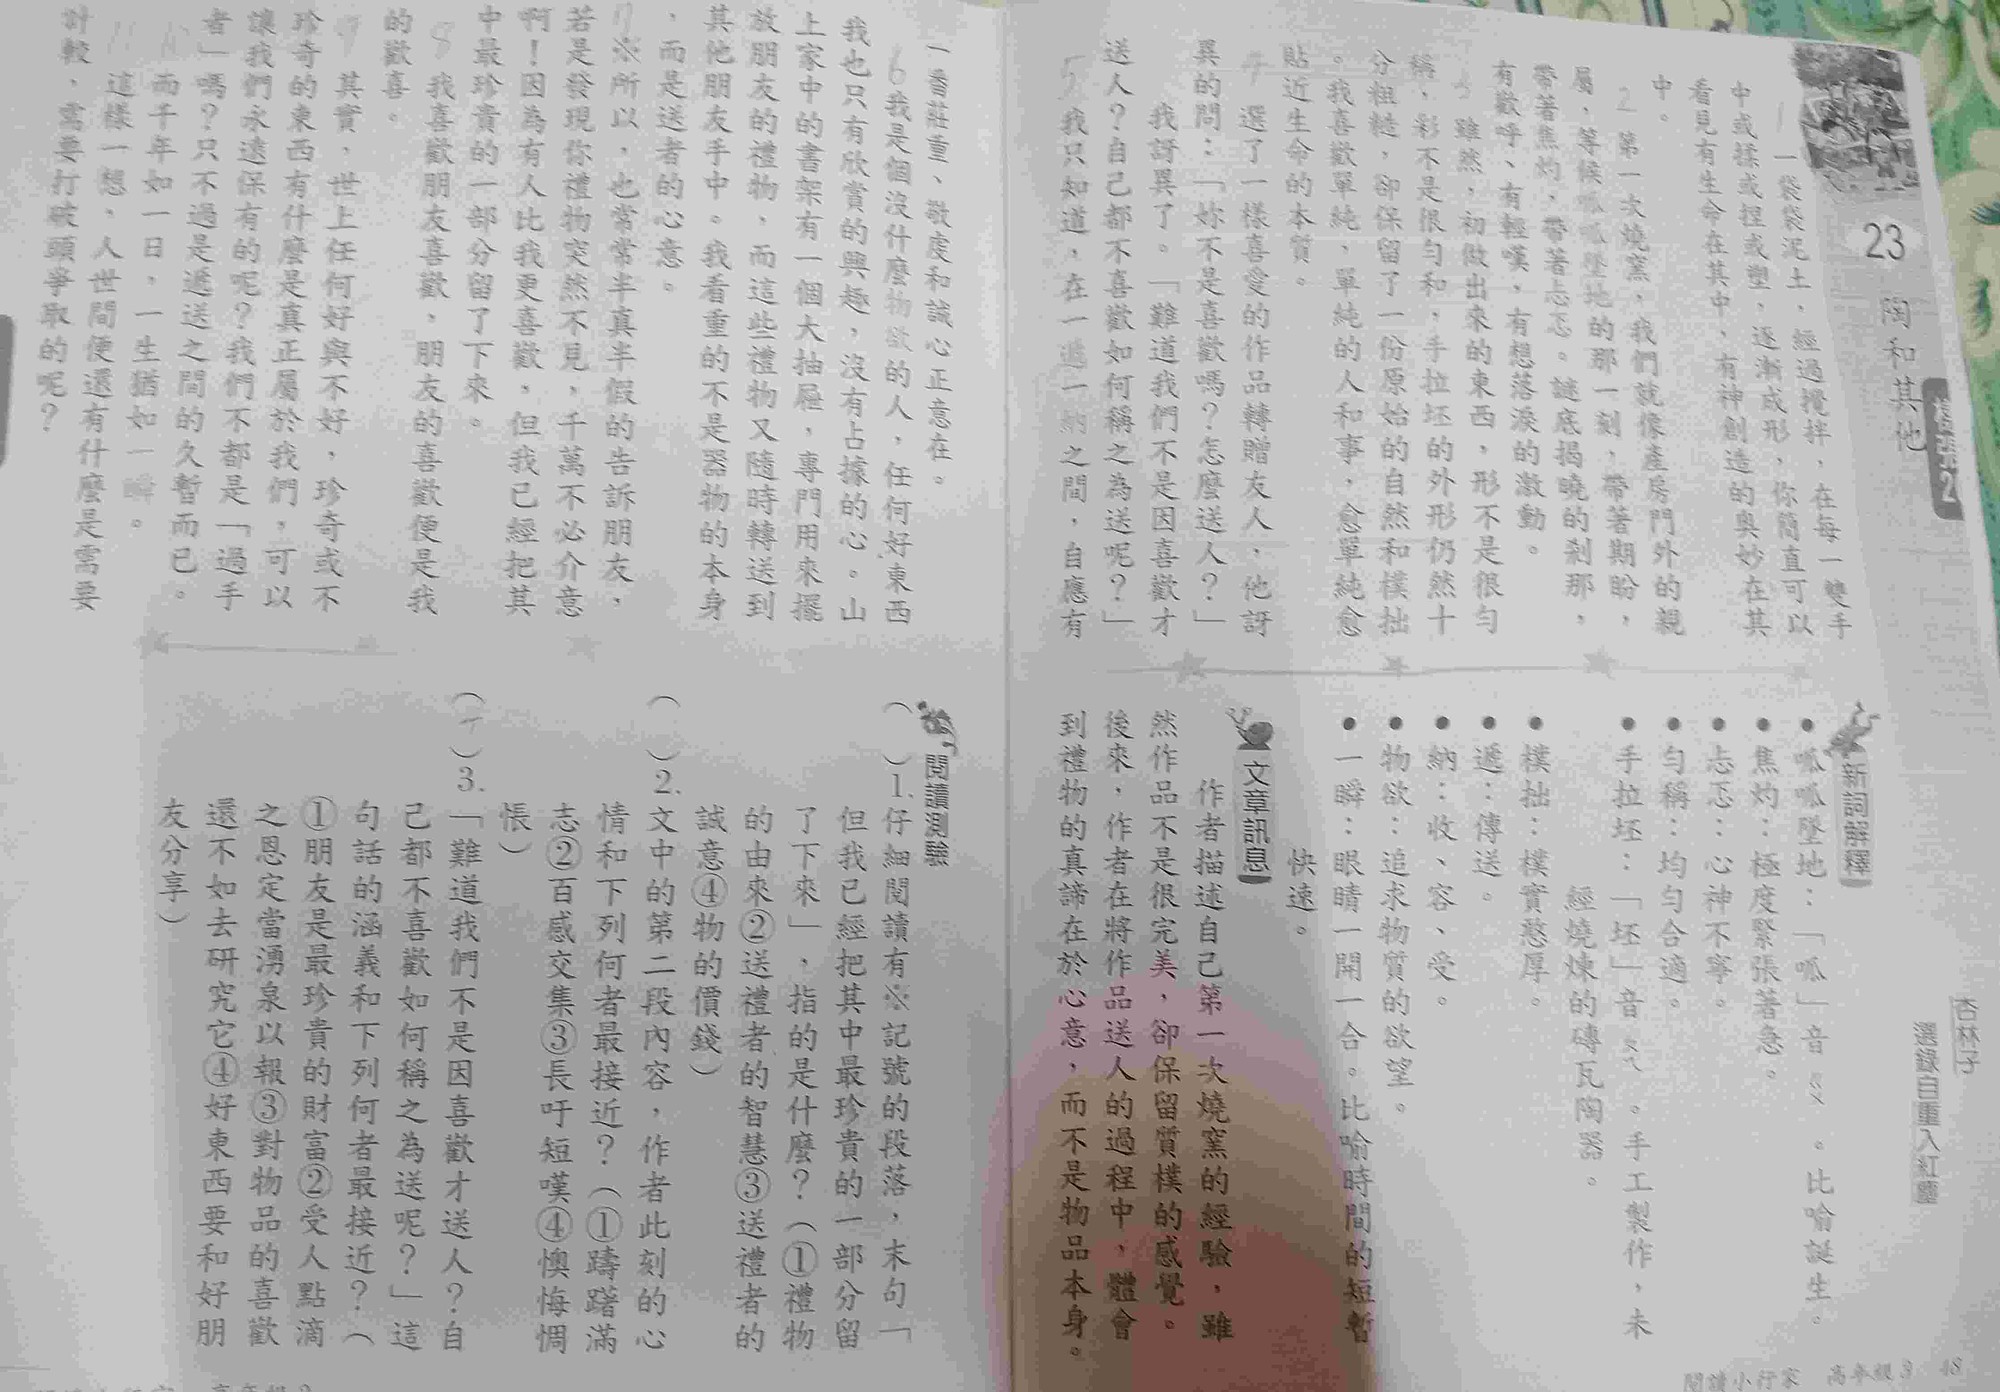 複語2
23
陶和其他
杏林子
選錄自重入紅塵
1 一袋袋泥土，經過攪拌，在每一雙手
中或揉或捏或塑，逐漸成形，你簡直可以
看見有生命在其中，有神創造的奧妙在其
中。
2 第一次燒窯，我們就像產房門外的親
屬，等候呱呱墜地的那一刻，帶著期盼，
帶著焦灼，帶著忐忑。謎底揭曉的剎那，
有歡呼、有輕嘆，有想落淚的激動。
3 雖然，初做出來的東西，形不是很勻
稱，彩不是很勻和，手拉坯的外形仍然十
分粗糙，卻保留了一份原始的自然和樸拙
。我喜歡單純，單純的人和事，愈單純愈
貼近生命的本質。
4 選了一樣喜愛的作品轉贈友人，他訝
異的問：「妳不是喜歡嗎？怎麼送人？」
我訝異了。「難道我們不是因喜歡才
送人？自己都不喜歡如何稱之為送呢？」
5 我只知道，在一遞一納之間，自應有
一番莊重、敬虔和誠心正意在。
6 我是個沒什麼物欲的人，任何好東西
我也只有欣賞的興趣，沒有占據的心。山
上家中的書架有一個大抽屜，專門用來擺
放朋友的禮物，而這些禮物又隨時轉送到
其他朋友手中。我看重的不是器物的本身
，而是送者的心意。
7 ※所以，也常常半真半假的告訴朋友，
若是發現你禮物突然不見，千萬不必介意
啊！因為有人比我更喜歡，但我已經把其
中最珍貴的一部分留了下來。
8 我喜歡朋友喜歡，朋友的喜歡便是我
的歡喜。
9 其實，世上任何好與不好，珍奇或不
珍奇的東西有什麼是真正屬於我們，可以
讓我們永遠保有的呢？我們不都是「過手
者」嗎？只不過是遞送之間的久暫而已。
10 而千年如一日，一生猶如一瞬。
11 這樣一想，人世間便還有什麼是需要
計較，需要打破頭爭取的呢？
新詞解釋
●呱呱墜地：「呱」音ㄍㄨ。比喻誕生。
●焦灼：極度緊張著急。
●忐忑：心神不寧。
●勻稱：均勻合適。
●手拉坯：「坯」音ㄆㄟ。手工製作，未
經燒煉的磚瓦陶器。
●樸拙：樸實憨厚。
●遞：傳送。
●納：收、容、受。
●物欲：追求物質的欲望。
●一瞬：眼睛一開一合。比喻時間的短暫
快速。
文章訊息
作者描述自己第一次燒窯的經驗，雖
然作品不是很完美，卻保留質樸的感覺。
後來，作者在將作品送人的過程中，體會
到禮物的真諦在於心意，而不是物品本身。
閱讀測驗
（　）1.仔細閱讀有※記號的段落，末句「
但我已經把其中最珍貴的一部分留
了下來」，指的是什麼？（①禮物
的由來②送禮者的智慧③送禮者的
誠意④物的價錢）
（　）2.文中的第二段內容，作者此刻的心
情和下列何者最接近？（①躊躇滿
志②百感交集③長吁短嘆④懊悔惆
悵）
（　）3.「難道我們不是因喜歡才送人？自
己都不喜歡如何稱之為送呢？」這
句話的涵義和下列何者最接近？（
①朋友是最珍貴的財富②受人點滴
之恩定當湧泉以報③對物品的喜歡
還不如去研究它④好東西要和好朋
友分享）
閱讀小行家　高年級3　48